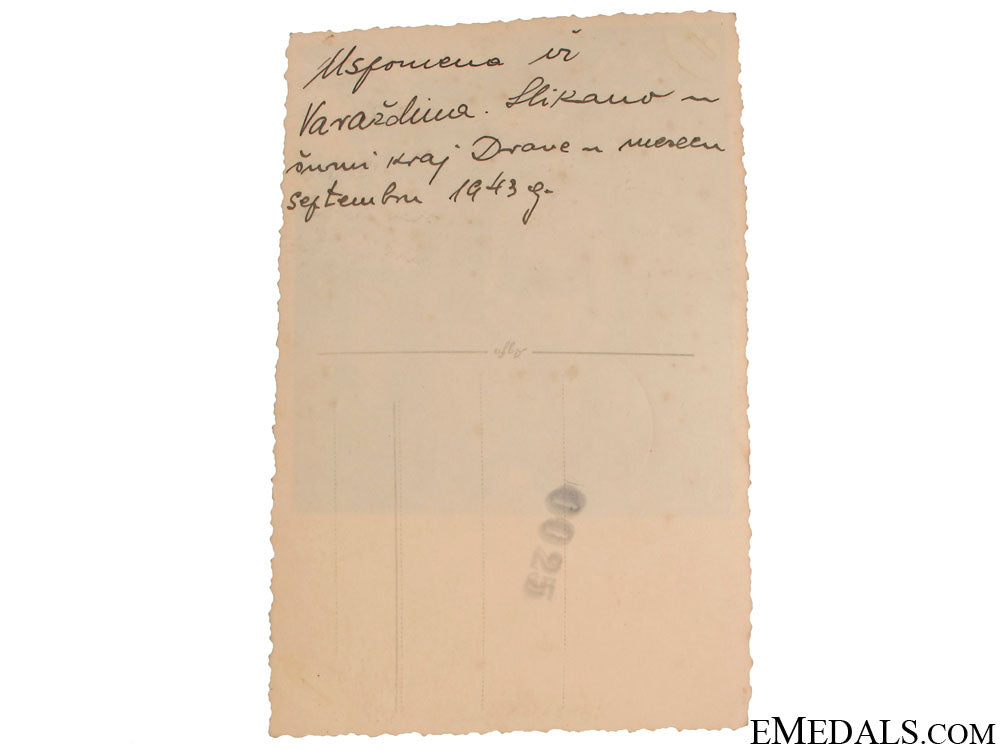 Uspomena iz
Varaždina. Slikano u
šumi kraj Drave u mesecu
septembru 1943 g.
Agfa
0025
EMEDALS.COM